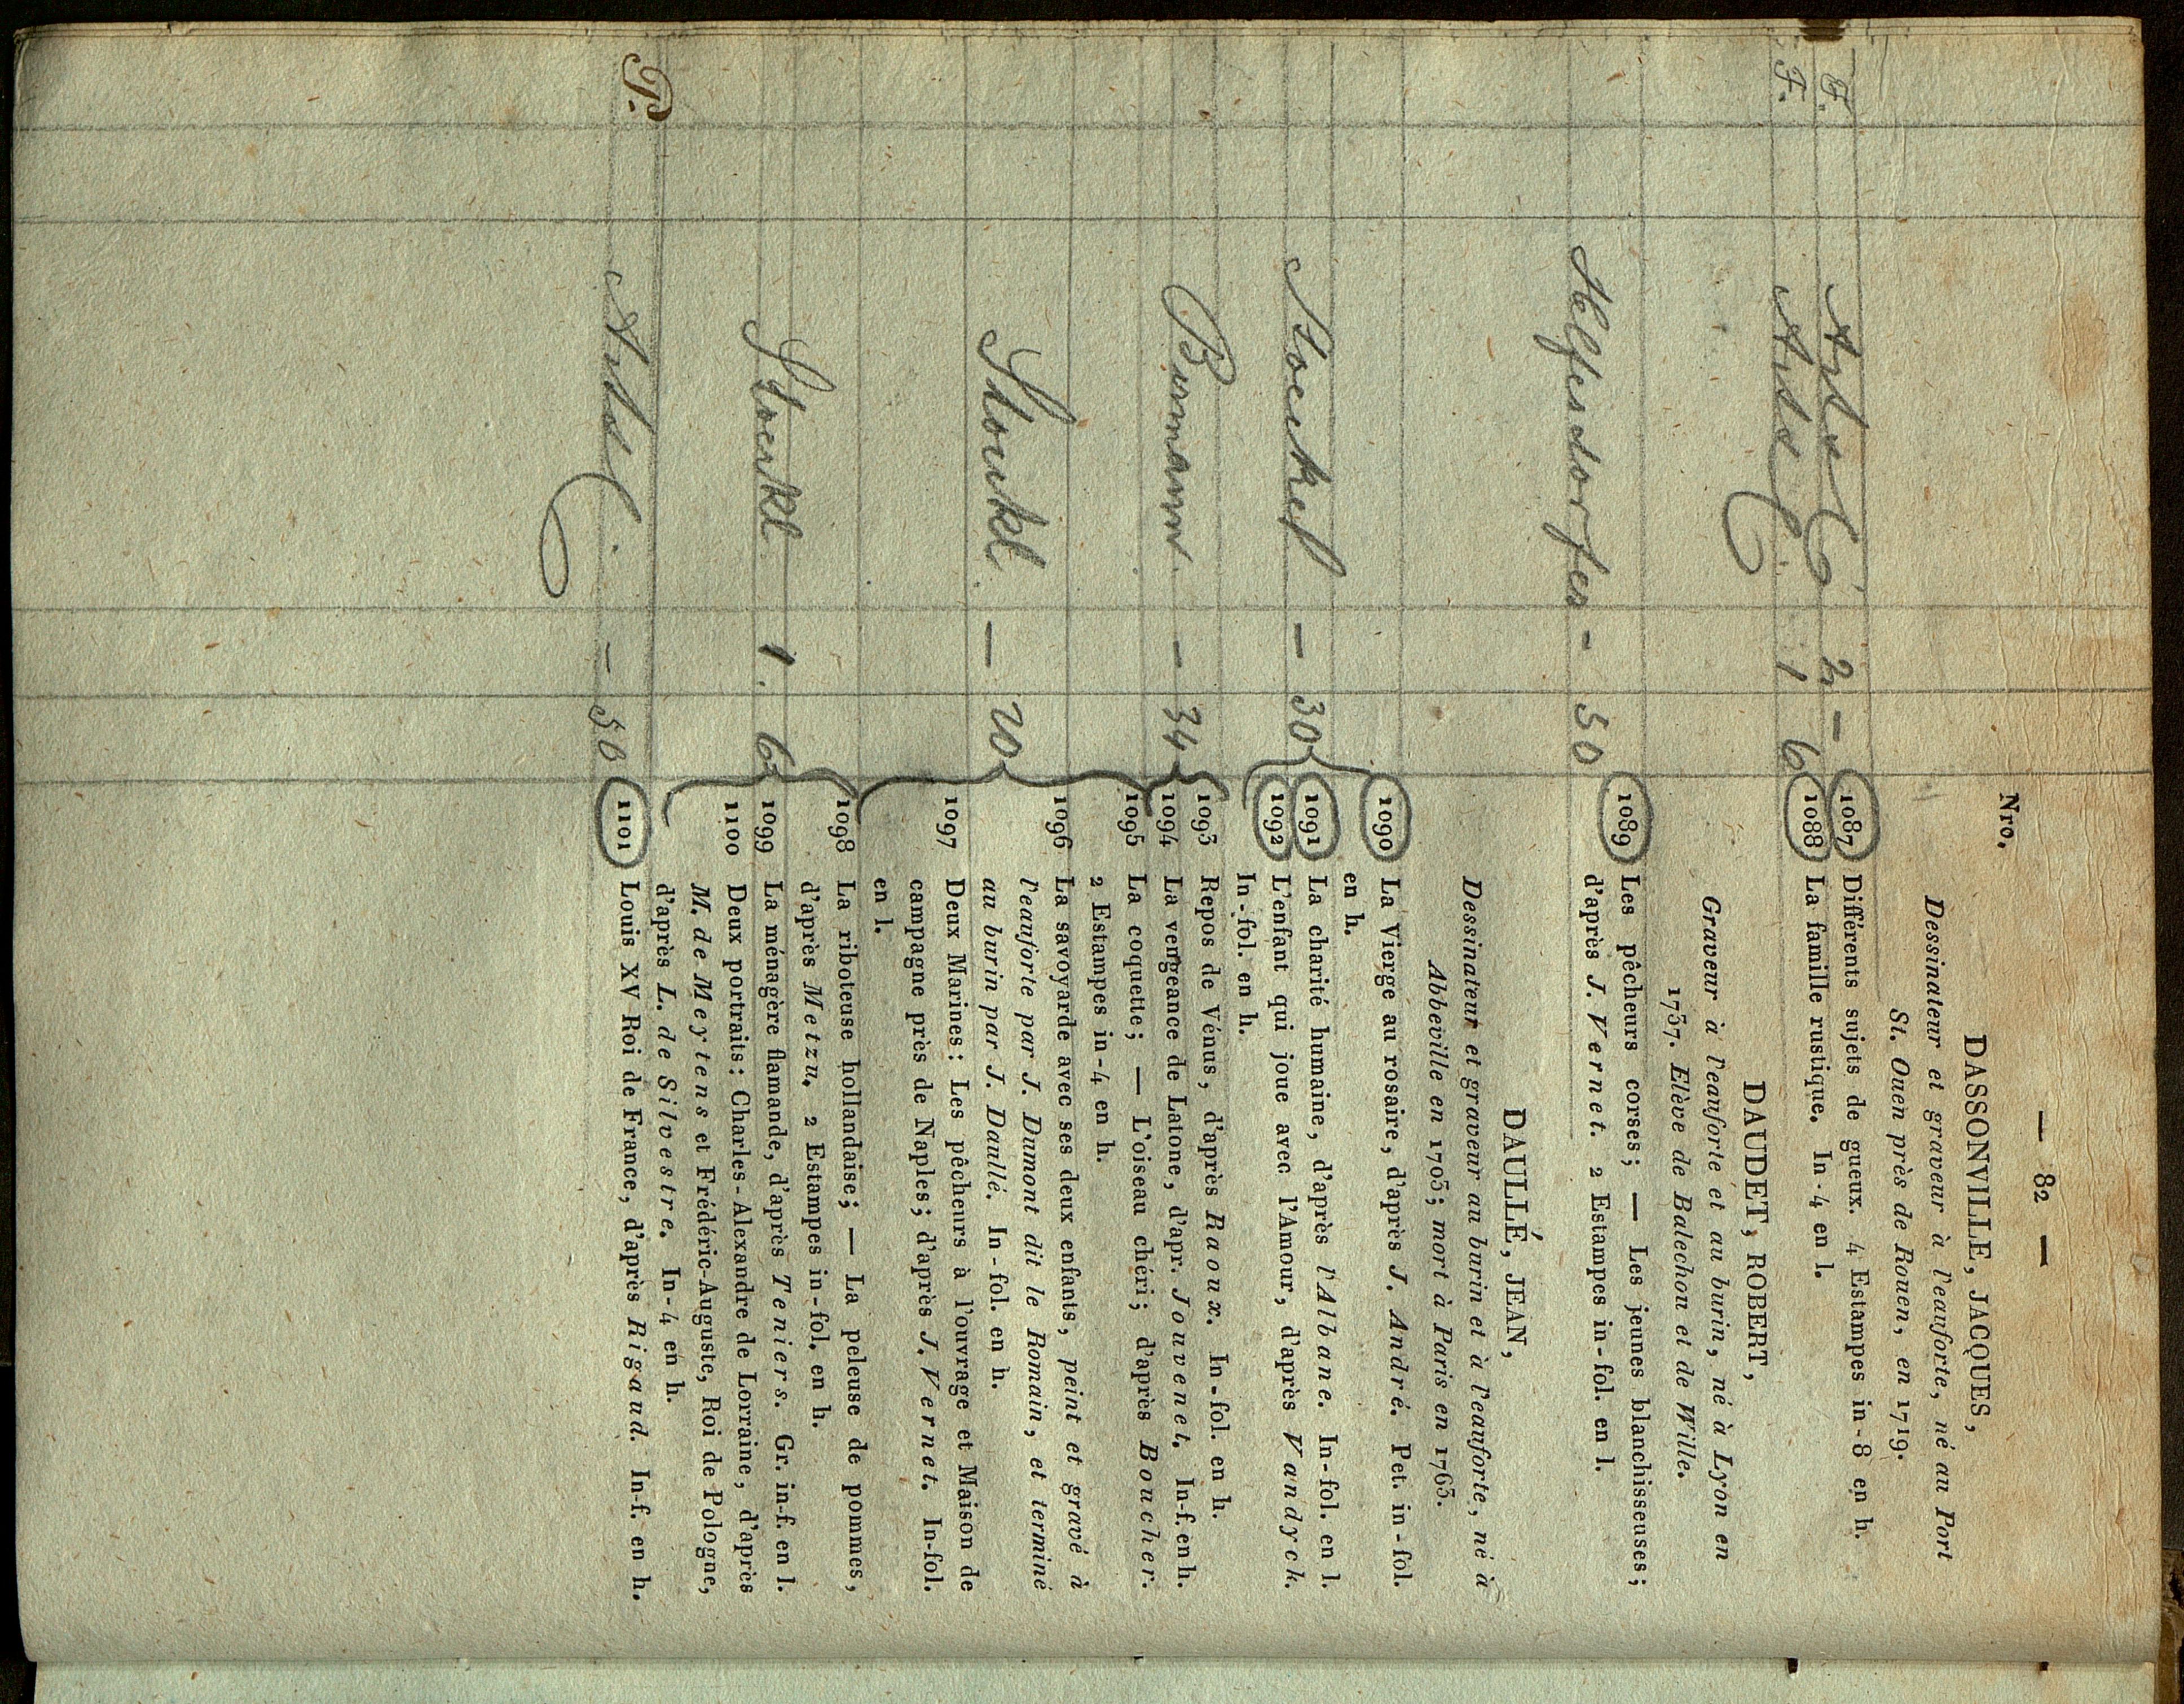 — 82 —
Nro.
DASSONVILLE, JACQUES,
Dessinateur et graveur à l'eauforte, né au Port
St. Ouen près de Rouen, en 1719.
F. Artar 2 — 1087 Différents sujets de gueux. 4 Estampes in-8 en h.
F. 1 6 1088 La famille rustique. In-4 en l.
DAUDET, ROBERT,
Graveur à l'eauforte et au burin, né à Lyon en
1737. Elève de Balechou et de Wille.
— 50 1089 Les pêcheurs corses; — Les jeunes blanchisseuses;
d'après J. Vernet. 2 Estampes in-fol. en l.
DAULLÉ, JEAN,
Dessinateur et graveur au burin et à l'eauforte, né à
Abbeville en 1703; mort à Paris en 1763.
1090 La Vierge au rosaire, d'après J. André. Pet. in-fol.
en h.
Stoeckel — 30 1091 La charité humaine, d'après l'Albane. In-fol. en l.
1092 L'enfant qui joue avec l'Amour, d'après Vandyck.
In-fol. en h.
1093 Repos de Vénus, d'après Raoux. In-fol. en h.
Bermann — 34 1094 La vengeance de Latone, d'apr. Jouvenet. In-f. en h.
1095 La coquette; — L'oiseau chéri; d'après Boucher.
2 Estampes in-4 en h.
1096 La savoyarde avec ses deux enfants, peint et gravé à
l'eauforte par J. Dumont dit le Romain, et terminé
Stoeckl — 20 au burin par J. Daullé. In-fol. en h.
1097 Deux Marines: Les pêcheurs à l'ouvrage et Maison de
campagne près de Naples; d'après J. Vernet. In-fol.
en l.
1098 La riboteuse hollandaise; — La peleuse de pommes,
d'après Metzu. 2 Estampes in-fol. en h.
Stoeckl 1. 6 1099 La ménagère flamande, d'après Teniers. Gr. in-f. en l.
1100 Deux portraits: Charles-Alexandre de Lorraine, d'après
M. de Meytens et Frédéric-Auguste, Roi de Pologne,
d'après L. de Silvestre. In-4 en h.
P. — 50 1101 Louis XV Roi de France, d'après Rigaud. In-f. en h.